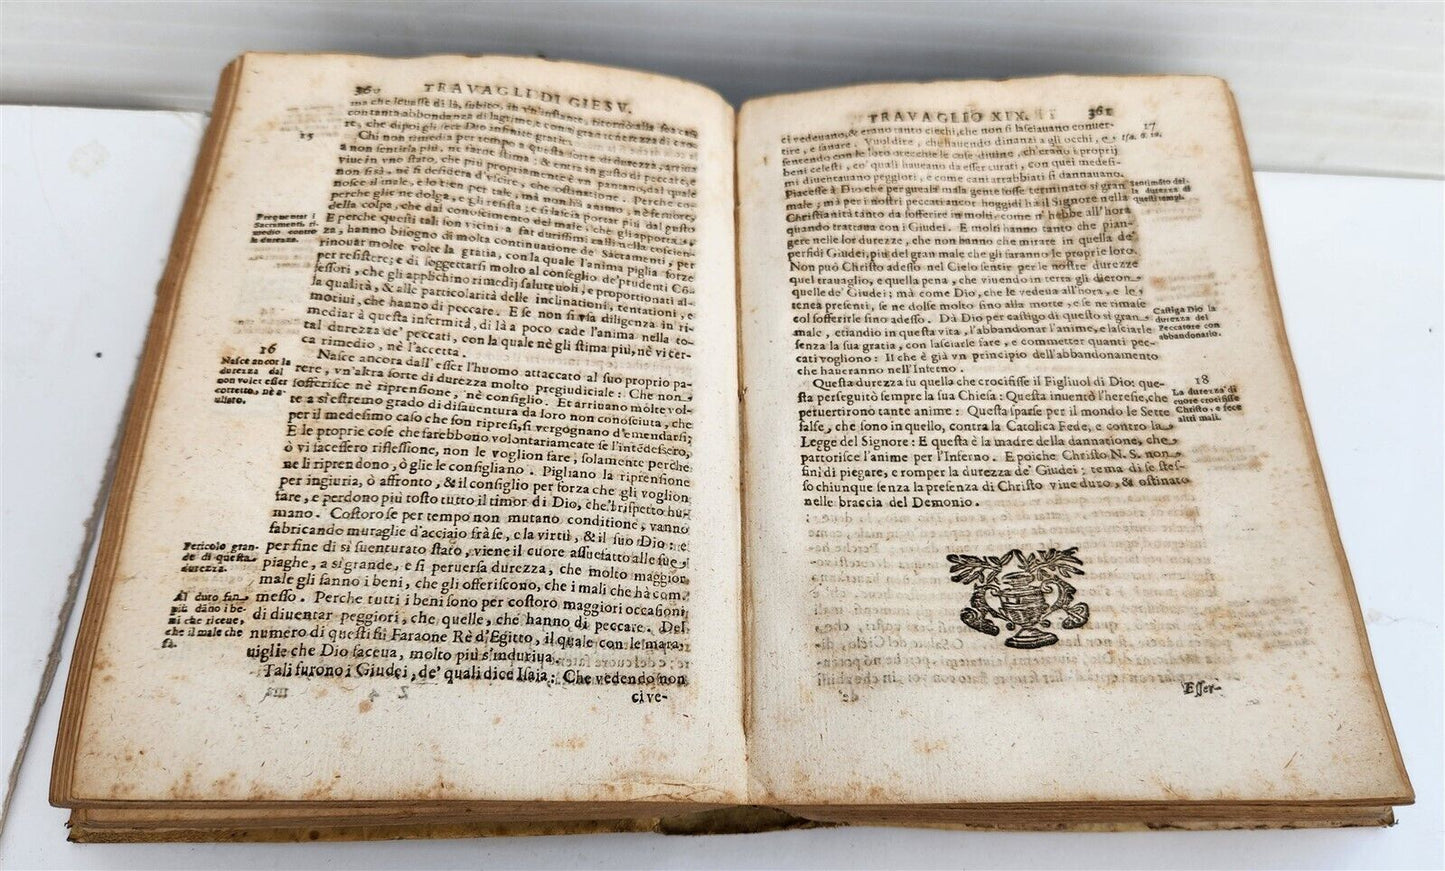 360 TRAVAGLI DI GIESV.
ma che leuasse di là, subito, in vn'instante, ritornò alla sea
con tanta abbondanza di lagrime, e con sì gran tenerezza di cuo
re, che dipoi gli fece Dio infinite gratie.
15
Chi non rimedia per tempo a questa sorte di durezza, arriua
à non sentirla più, nè farne stima: & entra in gusto di peccare, e
viue in vno stato, che più propriamente è vn pantano, dal quale
non si sà, nè si desidera d'vscire, che ostinatione. Perche co-
nosce il male, e lo tien per tale, mà non hà animo, nè feruore,
perche gli ne dolga, e gli resista; e si lascia portar più dal gusto
della colpa, che dal conoscimento del male, che gli apporta.
E perche questi tali son vicini a far durissimi calli nella coscien-
za, hanno bisogno di molta continuatione de' Sacramenti, per
rinouar molte volte la gratia, con la quale l'anima piglia forze
per resistere; e di soggettarsi molto al consiglio de' prudenti Cō
fessori, che gli applichino rimedij saluteuoli, e proportionati al-
la qualità, & alle particolarità delle inclinationi, tentationi, e
motiui, che hanno di peccare. E se non si vsa diligenza in ri-
mediar à questa infermità, di là a poco cade l'anima nella to-
tal durezza de' peccati, con la quale nè gli stima più, nè vi cer-
ca rimedio, nè l'accetta.
Frequentar i
Sacramenti, ri
medio contro
la durezza.
16
Nasce ancora dall'esser l'huomo attaccato al suo proprio pa-
rere, vn'altra sorte di durezza molto pregiudiciale: Che non
sofferisce nè riprensione, nè consiglio. Et arriuano molte vol-
te a sì estremo grado di disauentura da loro non conosciuta, che
per il medesimo caso che son ripresi, si vergognano d'emendarsi;
E le proprie cose che farebbono volontariamente se l'intēdessero,
ò vi facessero riflessione, non le voglion fare, solamente perche
ne li riprendono, ò glie le consigliano. Pigliano la riprensione
per ingiuria, ò affronto, & il consiglio per forza che gli voglion
fare, e perdono più tosto tutto il timor di Dio, che'l rispetto hu-
mano. Costoro se per tempo non mutano conditione, vanno
fabricando muraglie d'acciaio frà se, e la virtù, & il suo Dio: e
per fine di sì suenturato stato, viene il cuore assuefatto alle sue
piaghe, a sì grande, e sì peruersa durezza, che molto maggior
male gli fanno i beni, che gli offeriscono, che i mali che hà com-
messo. Perche tutti i beni sono per costoro maggiori occasioni
di diuentar peggiori, che quelle, che hanno di peccare. Del
numero di questi fù Faraone Rè d'Egitto, il quale con le mara-
uiglie che Dio faceua, molto più s'induriua.
Tali furono i Giudei, de' quali dice Isaia: Che vedendo non
Nasce ancor la
durezza dal
non voler esser
corretto, nè a-
uisato.
Pericolo gran-
de di questa
durezza.
Al duro fan-
più dāno i be-
ni che riceue,
che il male che
fà.
ci ve-
TRAVAGLIO XIX. 361
ci vedeuano, & erano tanto ciechi, che non si lasciauano conuer-
tire, e sanare. Vuol dire, che hauendo dinanzi a gli occhi, e
sentendo con le loro orecchie le cose diuine, ch'erano i proprij
beni celesti, co' quali haueano da esser curati, con quei medesi-
mi diuentauano peggiori, e come cani arrabbiati si dannauano.
Piacesse à Dio che per quella mala gente fosse terminato sì gran
male; mà per i nostri peccati ancor hoggidì hà il Signore nella
Christianità tanto da sofferire in molti, come n'hebbe all'hora
quando trattaua con i Giudei. E molti hanno tanto che pian-
gere nelle lor durezze, che non hanno che mirare in quella de'
perfidi Giudei, più del gran male che gli faranno le proprie loro.
Non può Christo adesso nel Cielo sentir per le nostre durezze
quel trauaglio, e quella pena, che viuendo in terra gli dieron
quelle de' Giudei; mà come Dio, che le vedeua all'hora, e le
tenea presenti, se ne dolse molto sino alla morte, e se ne rimale
col sofferirle sino adesso. Dà Dio per castigo di questo sì gran
male, etiandio in questa vita, l'abbandonar l'anime, e lasciarle
senza la sua gratia, con lasciarle fare, e commetter quanti pec-
cati vogliono: Il che è già vn principio dell'abbandonamento
che haueranno nell'Inferno.
17
a. 1 Isa. 6. 10.
Santimēto del
la durezza di
questi tempi.
Castiga Dio la
durezza del
Peccatore con
abbandonarlo.
Questa durezza fu quella che crocifisse il Figliuol di Dio: que-
sta perseguitò sempre la sua Chiesa: Questa inuentò l'heresie, che
peruertirono tante anime: Questa sparse per il mondo le Sette
false, che sono in quello, contra la Catolica Fede, e contro la
Legge del Signore: E questa è la madre della dannatione, che
partorisce l'anime per l'Inferno. E poiche Christo N. S. non
finì di piegare, e romper la durezza de' Giudei; tema di se stes-
so chiunque senza la presenza di Christo viue duro, & ostinato
nelle braccia del Demonio.
18
La durezza di
cuore crocifisse
Christo, e fece
altri mali.
Esser-